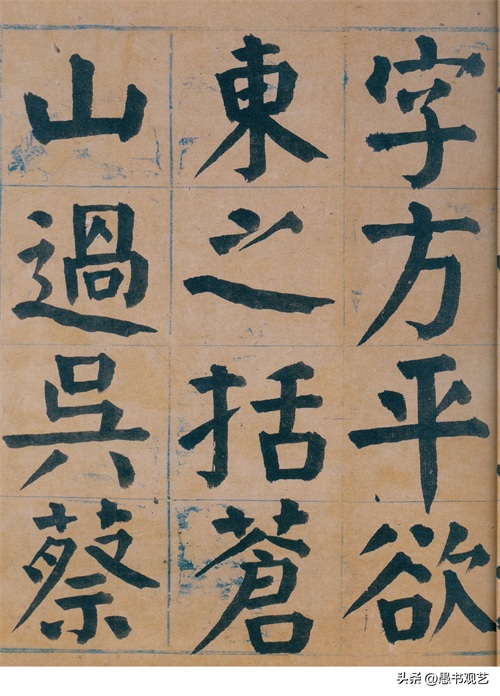 字方平欲
東之括蒼
山過吳蔡
头条 @愚书观艺